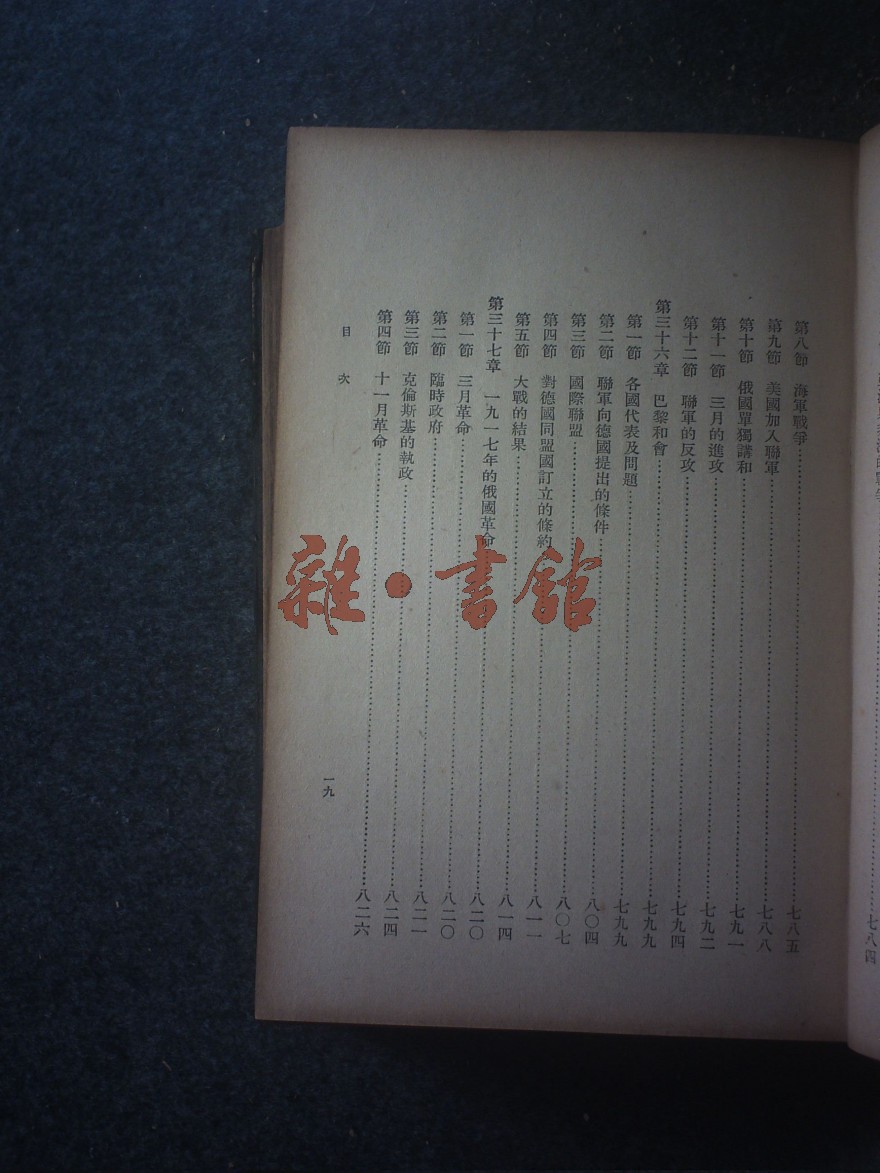 七八四
第八節 海軍戰爭……七八五
第九節 美國加入聯軍……七八八
第十節 俄國單獨講和……七九一
第十一節 三月的進攻……七九二
第十二節 聯軍的反攻……七九四
第三十六章 巴黎和會……七九九
第一節 各國代表及問題……七九九
第二節 聯軍向德國提出的條件……八〇四
第三節 國際聯盟……八〇七
第四節 對德國同盟國訂立的條約……八一一
第五節 大戰的結果……八一四
第三十七章 一九一七年的俄國革命……八二〇
第一節 三月革命……八二〇
第二節 臨時政府……八二一
第三節 克倫斯基的執政……八二四
第四節 十一月革命……八二六
目次
一九
雜·書館